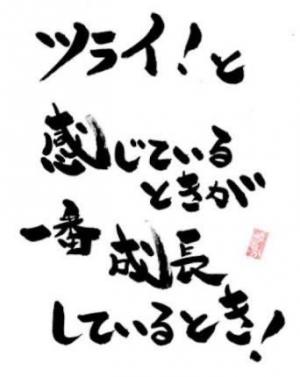 ツライ！と
感じている
ときが
一番成長
しているとき！